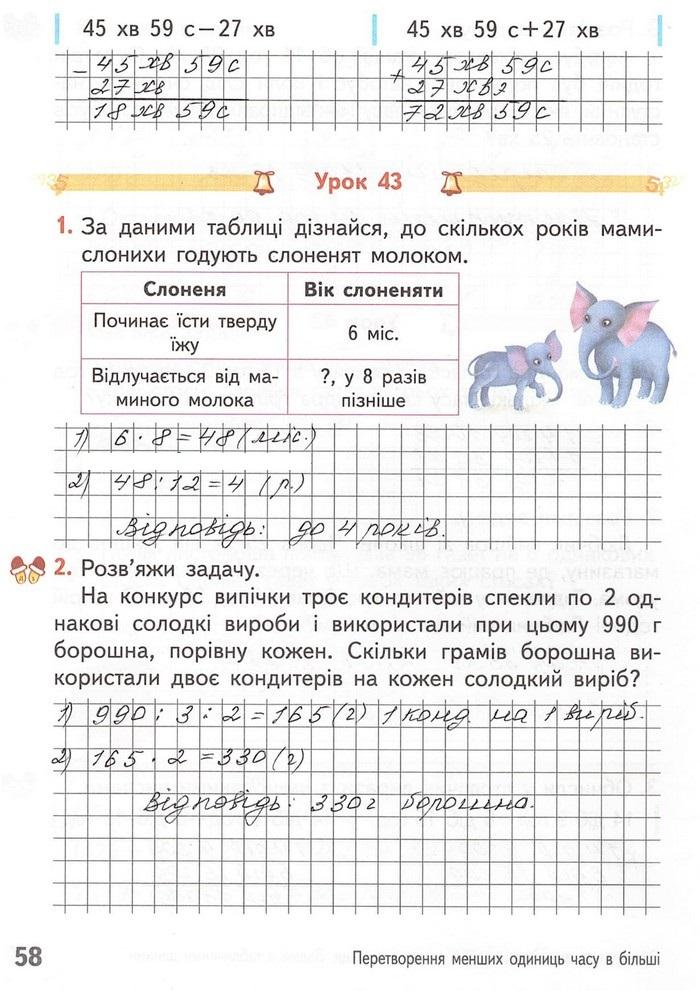 45 хв 59 с − 27 хв
45 хв 59 с + 27 хв
− 45 хв 59с
27 хв
18 хв 59с
+ 45 хв 59с
27 хв
72 хв 59с
Урок 43
1. За даними таблиці дізнайся, до скількох років мами-
слонихи годують слоненят молоком.
Слоненя
Вік слоненяти
Починає їсти тверду
їжу
6 міс.
Відлучається від ма-
миного молока
?, у 8 разів
пізніше
1) 6 · 8 = 48 (міс.)
2) 48 : 12 = 4 (р.)
Відповідь: до 4 років.
2. Розв'яжи задачу.
На конкурс випічки троє кондитерів спекли по 2 од-
накові солодкі вироби і використали при цьому 990 г
борошна, порівну кожен. Скільки грамів борошна ви-
користали двоє кондитерів на кожен солодкий виріб?
1) 990 : 3 : 2 = 165 (г) 1 конд. на 1 виріб.
2) 165 · 2 = 330 (г)
Відповідь: 330г борошна.
58
Перетворення менших одиниць часу в більші